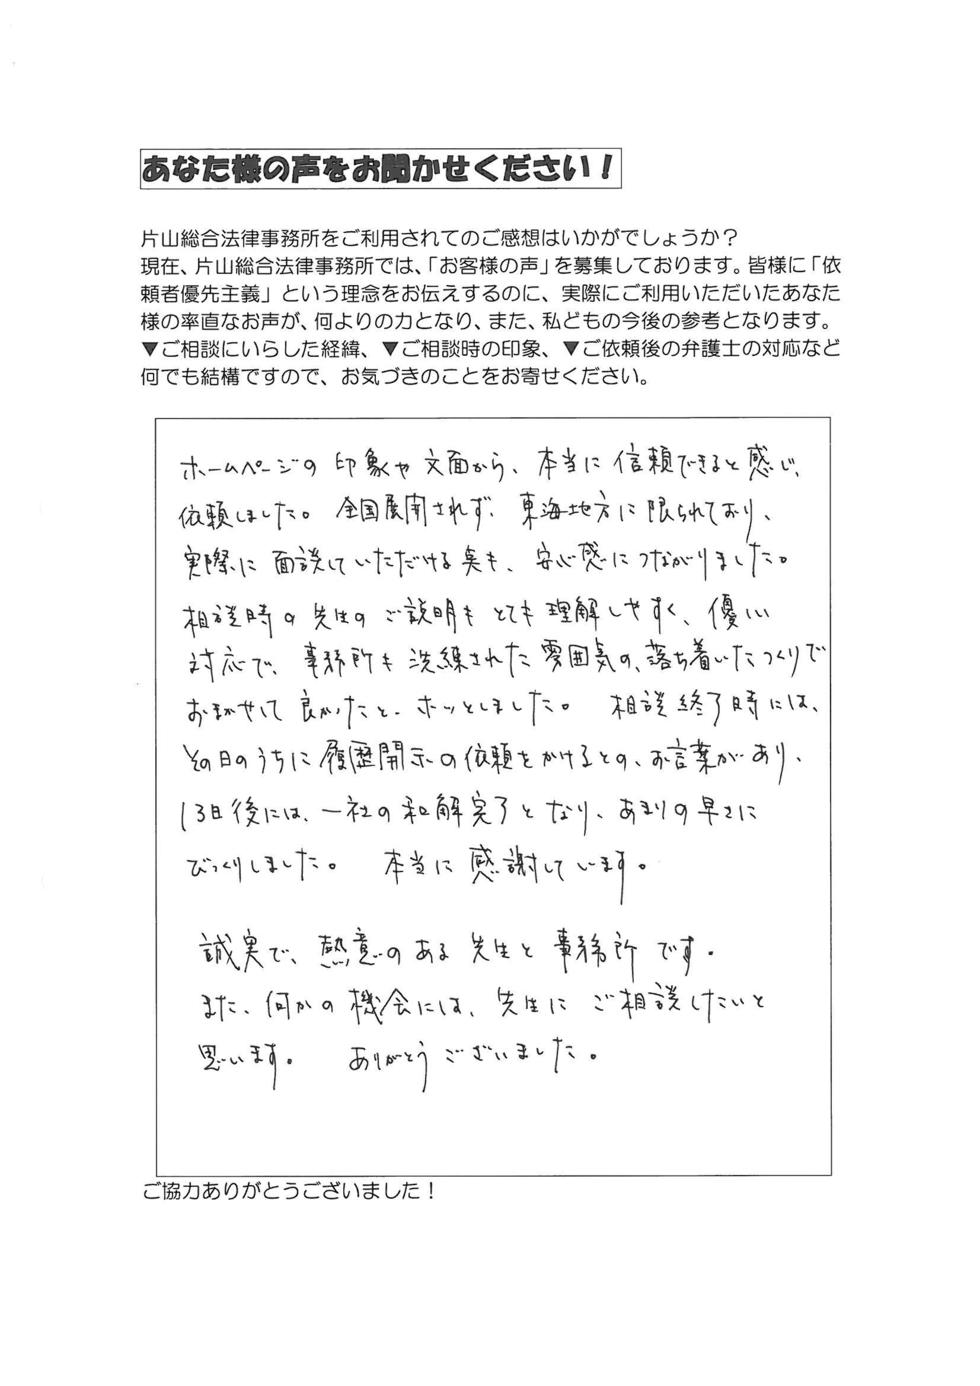 あなた様の声をお聞かせください！
片山総合法律事務所をご利用されてのご感想はいかがでしょうか？
現在、片山総合法律事務所では、「お客様の声」を募集しております。皆様に「依
頼者優先主義」という理念をお伝えするのに、実際にご利用いただいたあなた
様の率直なお声が、何よりの力となり、また、私どもの今後の参考となります。
▼ご相談にいらした経緯、▼ご相談時の印象、▼ご依頼後の弁護士の対応など
何でも結構ですので、お気づきのことをお寄せください。
ホームページの印象や文面から、本当に信頼できると感じ、
依頼しました。全国展開されず、東海地方に限られており、
実際に面談していただける点も、安心感につながりました。
相談時の先生のご説明もとても理解しやすく、優しい
対応で、事務所も洗練された雰囲気の、落ち着いたつくりで
おまかせして良かったと、ホッとしました。 相談終了時には、
その日のうちに履歴開示の依頼をかけるとの、お言葉があり、
13日後には、一社の和解完了となり、あまりの早さに
びっくりしました。 本当に感謝しています。
誠実で、熱意のある先生と事務所です。
また、何かの機会には、先生にご相談したいと
思います。 ありがとうございました。
ご協力ありがとうございました！